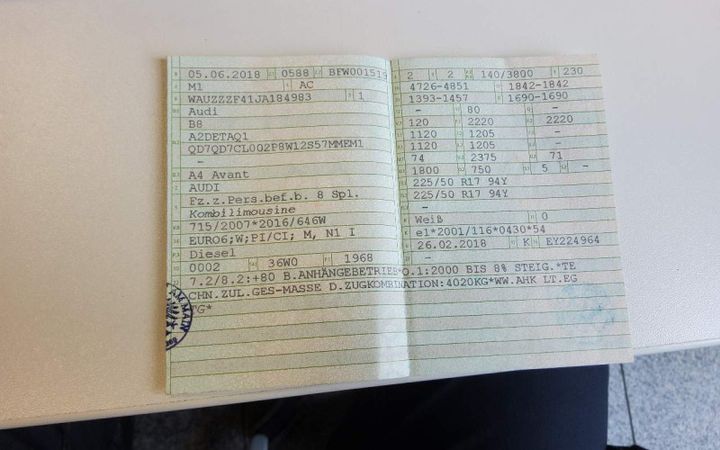 05.06.2018 0588 BFW001519
M1 AC
WAUZZZF41JA184983 1
Audi
B8
A2DETAQ1
QD7QD7CL002P8W12S57MMEM1
-
A4 Avant
AUDI
Fz.z.Pers.bef.b. 8 Spl.
Kombilimousine
715/2007*2016/646W
EURO6;W;PI/CI; M, N1 I
Diesel
0002 36W0 1968
2 2 140/3800 230
4726-4851 1842-1842
1393-1457 1690-1690
- 80 -
120 2220 2220
1120 1205 -
1120 1205 -
74 2375 71
1800 750 5 -
225/50 R17 94Y
225/50 R17 94Y
-
Weiß 0
e1*2001/116*0430*54
26.02.2018 K EY224964
7.2/8.2:+80 B.ANHÄNGEBETRIEB*O.1:2000 BIS 8% STEIG.*TE
CHN.ZUL.GES-MASSE D.ZUGKOMBINATION:4020KG*WW.AHK LT.EG
TG*